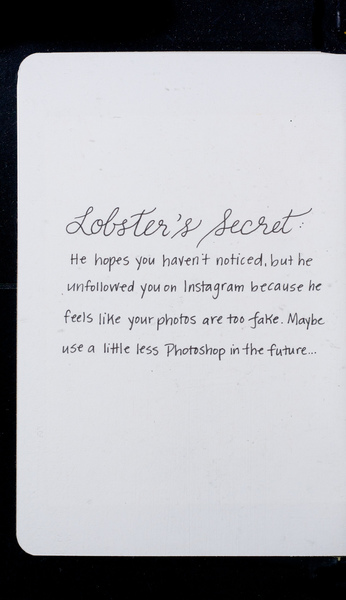 Lobster's Secret:
He hopes you haven't noticed, but he
unfollowed you on Instagram because he
feels like your photos are too fake. Maybe
use a little less Photoshop in the future...